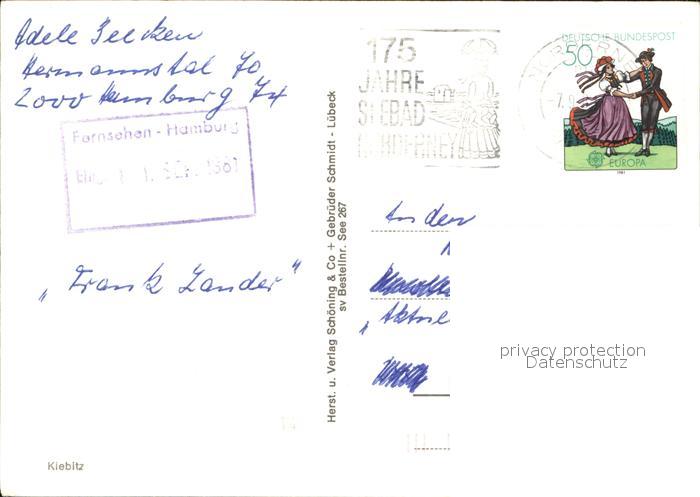 Adele
Hermannstal 70
2000 Hamburg 74
Fernsehen - Hamburg
"Frank Zander"
Kiebitz
Herst. u. Verlag Schöning & Co + Gebrüder Schmidt - Lübeck
sv Bestellnr. See 267
175
JAHRE
SEEBAD
NORDERNEY
DEUTSCHE BUNDESPOST
50
EUROPA
1981
An den
„Aktuel
privacy protection
Datenschutz